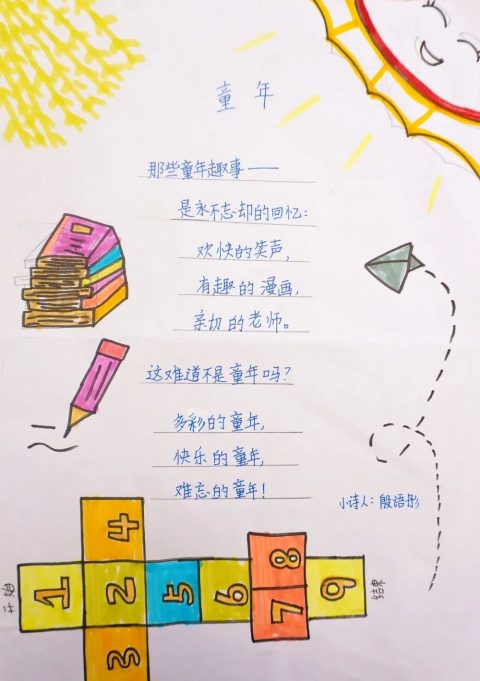 童年
那些童年趣事——
是永不忘却的回忆:
欢快的笑声,
有趣的漫画,
亲切的老师。
这难道不是童年吗?
多彩的童年,
快乐的童年,
难忘的童年!
小诗人:殷语彤
4
开始
1
2
5
6
8
7
9
结束
3